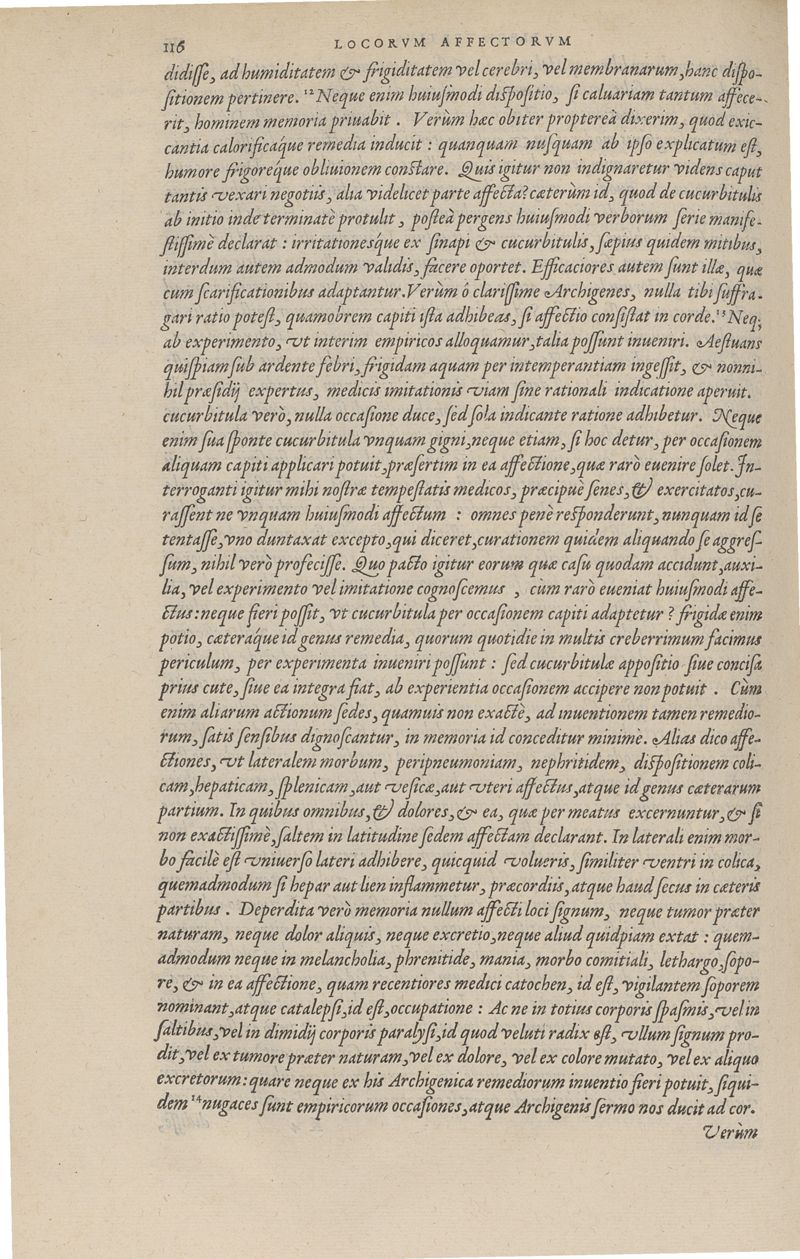 116 LOCORVM AFFECTORVM
didiſſe, ad humiditatem & frigiditatem vel cerebri, vel membranarum, hanc diſpo-
ſitionem pertinere. ¹²Neque enim huiuſmodi diſpoſitio, ſi caluariam tantum affece-
rit, hominem memoria priuabit . Verùm hæc obiter proptereà dixerim, quod exic-
cantia calorificáque remedia inducit : quanquam nuſquam ab ipſo explicatum eſt,
humore frigoreque obliuionem conſtare. Quis igitur non indignaretur videns caput
tantis vexari negotiis, alia videlicet parte affecta? cæterùm id, quod de cucurbitulis
ab initio indeterminatè protulit, poſteà pergens huiuſmodi verborum ſerie manife-
ſtiſſimè declarat : irritationesq́ue ex ſinapi & cucurbitulis, ſæpius quidem mitibus,
interdum autem admodum validis, facere oportet. Efficaciores autem ſunt illæ, quæ
cum ſcarificationibus adaptantur. Verùm ô clariſſime Archigenes, nulla tibi ſuffra-
gari ratio poteſt, quamobrem capiti iſta adhibeas, ſi affectio conſiſtat in corde. ¹³Neq;
ab experimento, vt interim empiricos alloquamur, talia poſſunt inueniri. Aeſtuans
quiſpiam ſub ardente febri, frigidam aquam per intemperantiam ingeſſit, & nonni-
hil præſidij expertus, medicis imitationis viam ſine rationali indicatione aperuit.
cucurbitula verò, nulla occaſione duce, ſed ſola indicante ratione adhibetur. Neque
enim ſua ſponte cucurbitula vnquam gigni, neque etiam, ſi hoc detur, per occaſionem
aliquam capiti applicari potuit, præſertim in ea affectione, quæ rarò euenire ſolet. In-
terroganti igitur mihi noſtræ tempeſtatis medicos, præcipuè ſenes, & exercitatos, cu-
raſſent ne vnquam huiuſmodi affectum : omnes penè reſponderunt, nunquam id ſe
tentaſſe, vno duntaxat excepto, qui diceret, curationem quidem aliquando ſe aggreſ-
ſum, nihil verò profeciſſe. Quo pacto igitur eorum quæ caſu quodam accidunt, auxi-
lia, vel experimento vel imitatione cognoſcemus , cùm rarò eueniat huiuſmodi affe-
ctus: neque fieri poſſit, vt cucurbitula per occaſionem capiti adaptetur ? frigidæ enim
potio, cæteraque id genus remedia, quorum quotidie in multis creberrimum facimus
periculum, per experimenta inueniri poſſunt : ſed cucurbitulæ appoſitio ſiue conciſa
prius cute, ſiue ea integra fiat, ab experientia occaſionem accipere non potuit . Cùm
enim aliarum actionum ſedes, quamuis non exactè, ad inuentionem tamen remedio-
rum, ſatis ſenſibus dignoſcantur, in memoria id conceditur minimè. Alias dico affe-
ctiones, vt lateralem morbum, peripneumoniam, nephritidem, diſpoſitionem coli-
cam, hepaticam, ſplenicam, aut veſicæ, aut vteri affectus, atque id genus cæterarum
partium. In quibus omnibus, & dolores, & ea, quæ per meatus excernuntur, & ſi
non exactiſſimè, ſaltem in latitudine ſedem affectam declarant. In laterali enim mor-
bo facilè eſt vniuerſo lateri adhibere, quicquid volueris, ſimiliter ventri in colica,
quemadmodum ſi hepar aut lien inflammetur, præcordiis, atque haud ſecus in cæteris
partibus . Deperdita verò memoria nullum affecti loci ſignum, neque tumor præter
naturam, neque dolor aliquis, neque excretio, neque aliud quidpiam extat : quem-
admodum neque in melancholia, phrenitide, mania, morbo comitiali, lethargo, ſopo-
re, & in ea affectione, quam recentiores medici catochen, id eſt, vigilantem ſoporem
nominant, atque catalepſi, id eſt, occupatione : Ac ne in totius corporis ſpaſmis, vel in
ſaltibus, vel in dimidij corporis paralyſi, id quod veluti radix eſt, vllum ſignum pro-
dit, vel ex tumore præter naturam, vel ex dolore, vel ex colore mutato, vel ex aliquo
excretorum: quare neque ex his Archigenica remediorum inuentio fieri potuit, ſiqui-
dem ¹⁴nugaces ſunt empiricorum occaſiones, atque Archigenis ſermo nos ducit ad cor.
Verùm